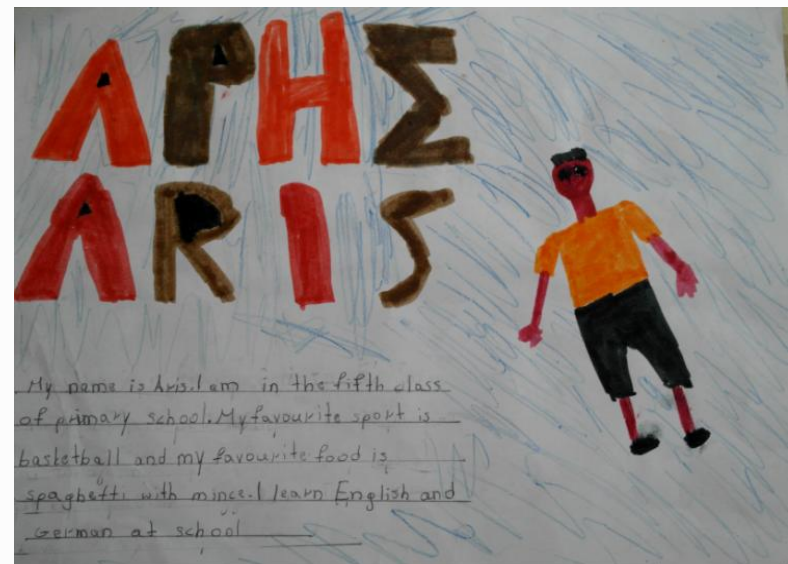 ΑΡΗΣ
ARIS
My name is Aris.I am in the fifth class
of primary school.My favourite sport is
basketball and my favourite food is
spaghetti with mince.I learn English and
German at school